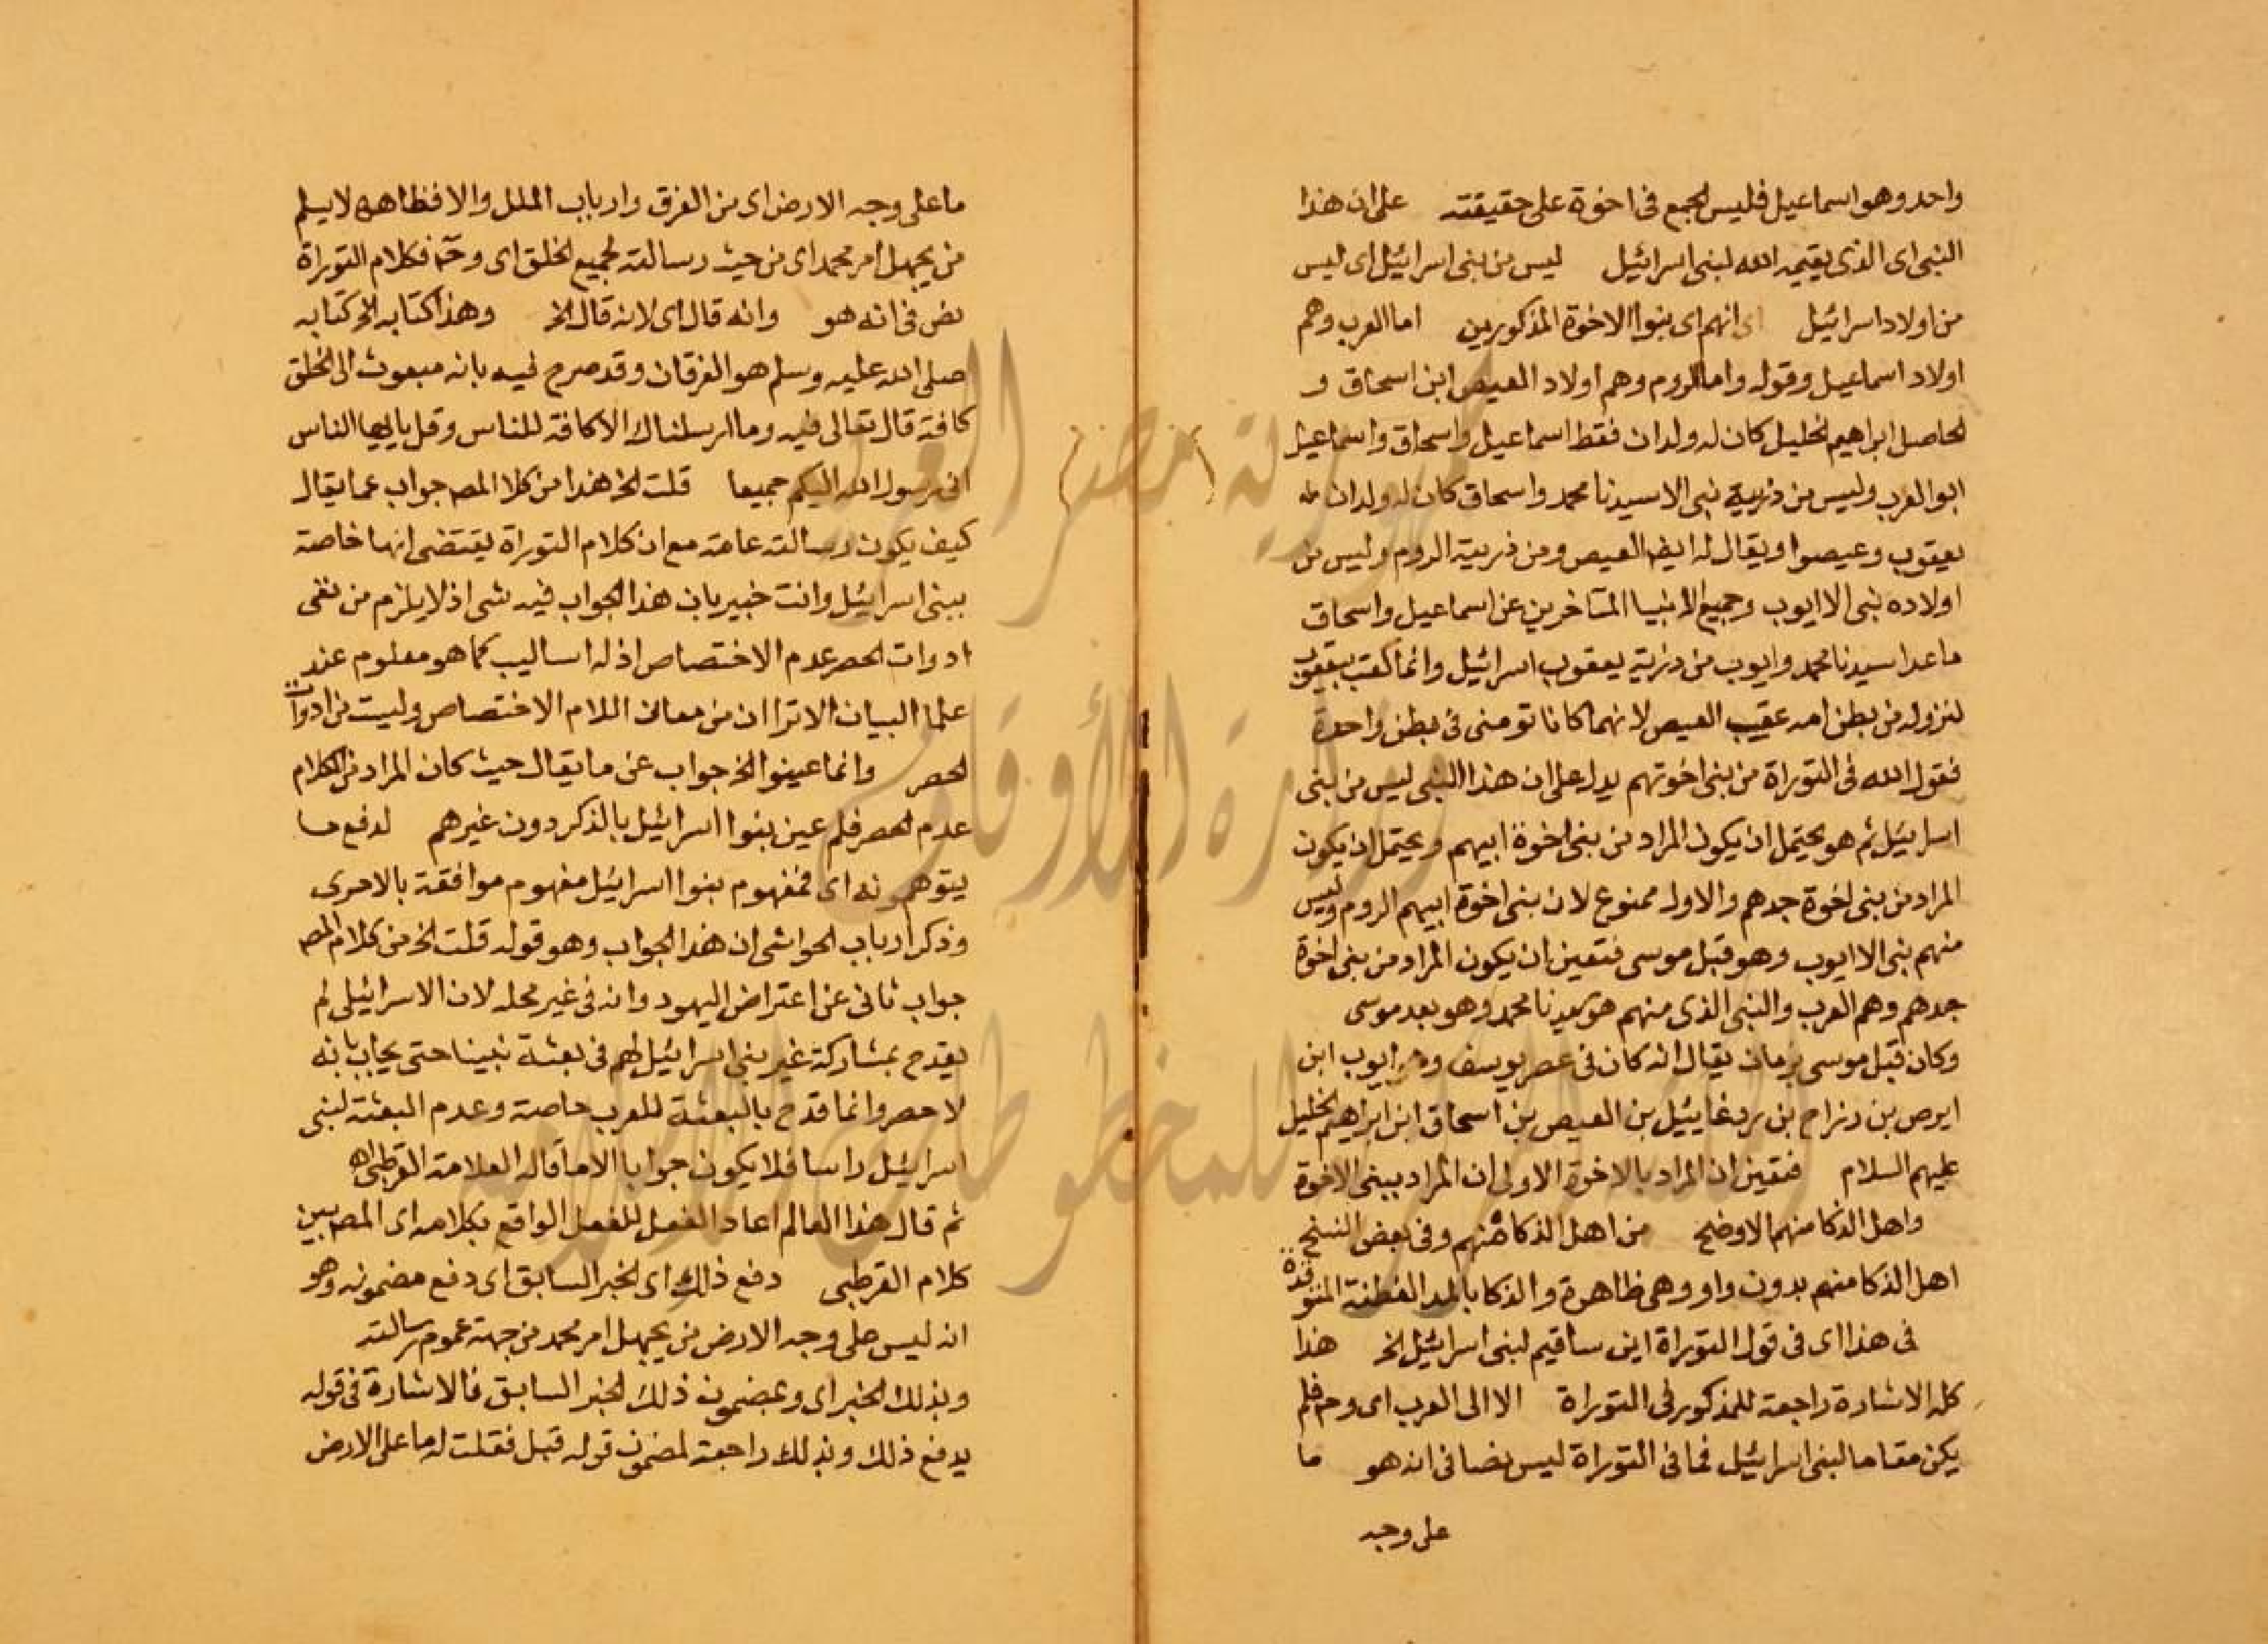 واحد وهو اسماعيل فليس الجمع فى اخوة على حقيقته على ان هذا
النبى اى الذى يقيمه الله لبنى اسرائيل ليس من بنى اسرائيل اى ليس
من اولاد اسرائيل اى انهم اى بنوا الاخوة المذكورين اما العرب وهم
اولاد اسماعيل وقوله واما الروم وهم اولاد العيص ابن اسحاق و
الحاصل ابراهيم الخليل كان له ولدان فقط اسماعيل واسحاق واسماعيل
ابوا العرب وليس من ذريية نبى الا سيدنا محمد واسحاق كان له ولدان
يعقوب وعيصوا ويقال له ايضا العيص ومن ذريية الروم وليس من
اولاده نبى الا ايوب وجميع الانبيا المتاخرين عن اسماعيل واسحاق
ما عدا سيدنا محمد وايوب من ذرية يعقوب اسرائيل وانما لقب بيعقوب
لنزوله من بطن امه عقيب العيص لانهما كانا تومنى فى بطن واحدة
فقول الله فى التوراة من بنى اخوتهم يدل على ان هذا النبى ليس من بنى
اسرايئل ثم هو يحتمل ان يكون المراد من بنى اخوة ابيهم ويحتمل ان يكون
المراد من بنى اخوة جدهم والاول ممنوع لان بنى اخوة ابيهم الروم وليس
منهم بنى الا ايوب وهو قبل موسى فتعين ان يكون المراد من بنى اخوة
جدهم وهم العرب والنبى الذى منهم هو سيدنا محمد وهو بعد موسى
وكان قبل موسى بزمان يقال انه كان فى عصر يوسف وهو ايوب ابن
ايوص بن رزاح بن يرغايئيل بن العيص بن اسحاق ابن ابراهيم الخليل
عليهم السلام فتعين ان المراد بالاخوة الاولى ان المراد ببنى الاخوة
واهل الذكا منهم الاوضح من اهل الذكا منهم وفى بعض النسخ
اهل الذكا منهم بدون واو وهى ظاهرة والذكا بالمد الفطنة المتوقدة
فى هذا اى فى قول التوراة اين ساقيم لبنى اسرائيل الخ هذا
كله الاشارة راجعة للمذكور فى التوراة الا الى العرب اى وح فلم
يكن مقاما لبنى اسرائيل فما فى التوراة ليس نصا فى انه هو ما
على وجه
ما على وجه الارض اى من الفرق وارباب الملل والا فظاهره لا يسلم
من يجهل امر محمد اى من حيث رسالته لجميع الخلق اى وح فكلام التوراة
نص فى انه هو وانه قال اى لانه قال الخ وهذا كتابه الخ كتابه
صلى الله عليه وسلم هو الفرقان وقد صرح فيه بانه مبعوث الى الخلق
كافة قال تعالى فيه وما ارسلناك الا كافة للناس وقل يا ايها الناس
انى رسول الله اليكم جميعا قلت الخ هذا من كلا المص جواب عما يقال
كيف يكون رسالته عامة مع ان كلام التوراة يقتضى انها خاصة
ببنى اسرائيل وانت خبير بان هذا الجواب فيه شى اذ لا يلزم من نفى
ادوات الحصر عدم الاختصاص اذ له اساليب كما هو معلوم عند
علما البيان الا ترا ان من معانى اللام الاختصاص وليت من ادوات
الحصر وانما عينوا الخ جواب عن ما يقال حيث كان المراد من الكلام
عدم الحصر فلم عين بنوا اسرائيل بالذكر دون غيرهم لدفع ما
يتوهمونه اى فمفهوم بنوا اسرائيل مفهوم موافقة بالاحرى
وذكر ارباب الحواشى ان هذا الجواب وهو قوله قلت الخ من كلام المص
جواب ثانى عن اعتراض اليهود وانه فى غير محله لان الاسرائيلى لم
يقدح بمشاركة غير بنى اسرائيل لهم فى بعثة نبينا حتى يجاب بانه
لا حصر وانما قدح بالبعثة للعرب خاصة وعدم البعثة لبنى
اسرائيل راسا فلا يكون جوابا الا ما قاله العلامة القرطبى اه
ثم قال هذا العالم اعاد الفصل للفصل الواقع بكلامه اى المص بين
كلام القرطبى دفع ذلك اى الخبر السابق اى دفع مضمونه وهو
انه ليس على وجه الارض من يجهل امر محمد من جهة عموم رسالته
وبذلك الخبر اى وبمضمون ذلك الخبر السابق فالاشارة فى قوله
يدفع ذلك وبذلك راجعة لمضمون قوله قبل فقلت له ما على الارض